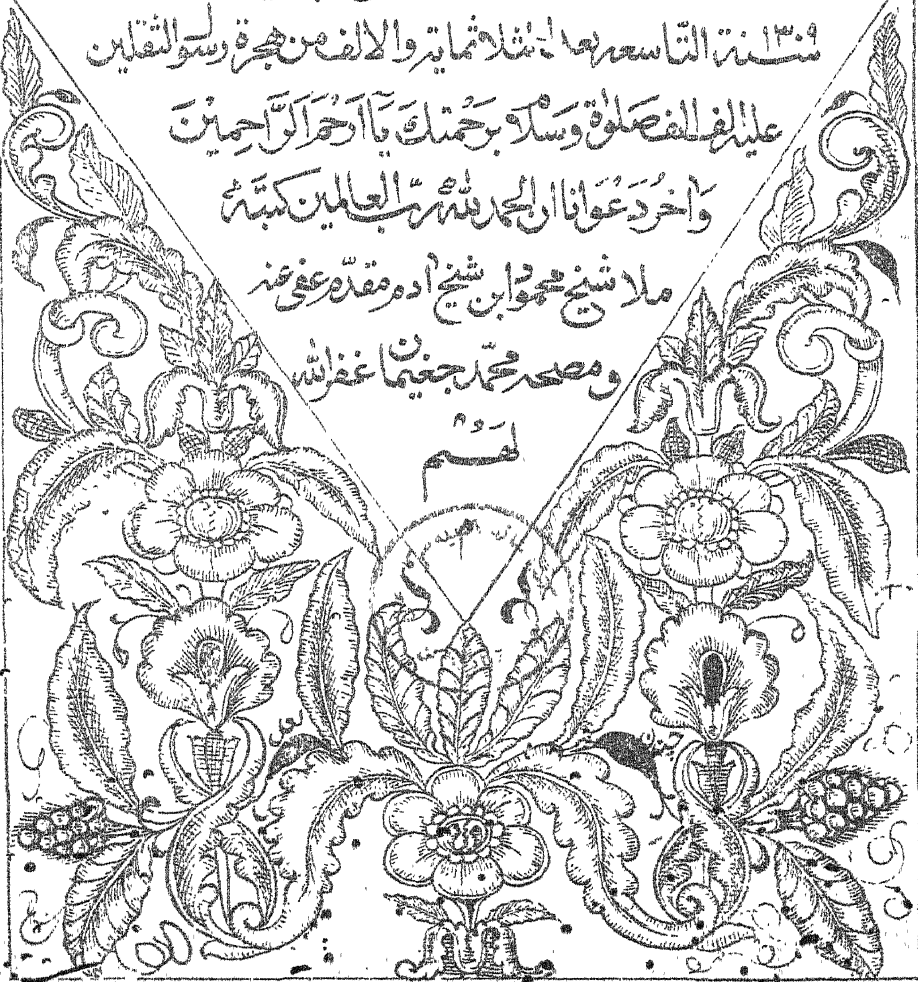 سنة ١٣٠٩ التاسعه بعد الثلاثمایة والالف من هجرة رسول الثقلین
علیه الف الف صلوة وسلام برحمتك یَآ اَرْحَمَ الرَّاحِمِیْنَ
وَاٰخِرُ دَعْوَانا ان الحمد لله رب العالمین کتبَهُ
ملا شیخ محمود ابن شیخ ادم مقدم عفی عنه
ومصححه محمد جغیمان غفر الله
لهم